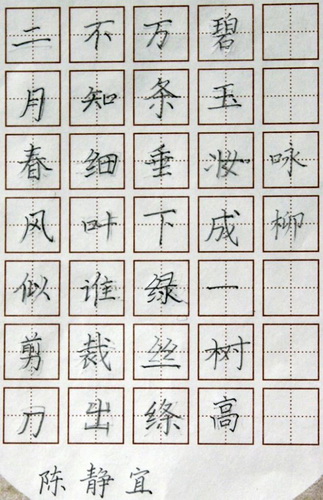 咏柳
碧玉妆成一树高
万条垂下绿丝绦
不知细叶谁裁出
二月春风似剪刀
陈静宜